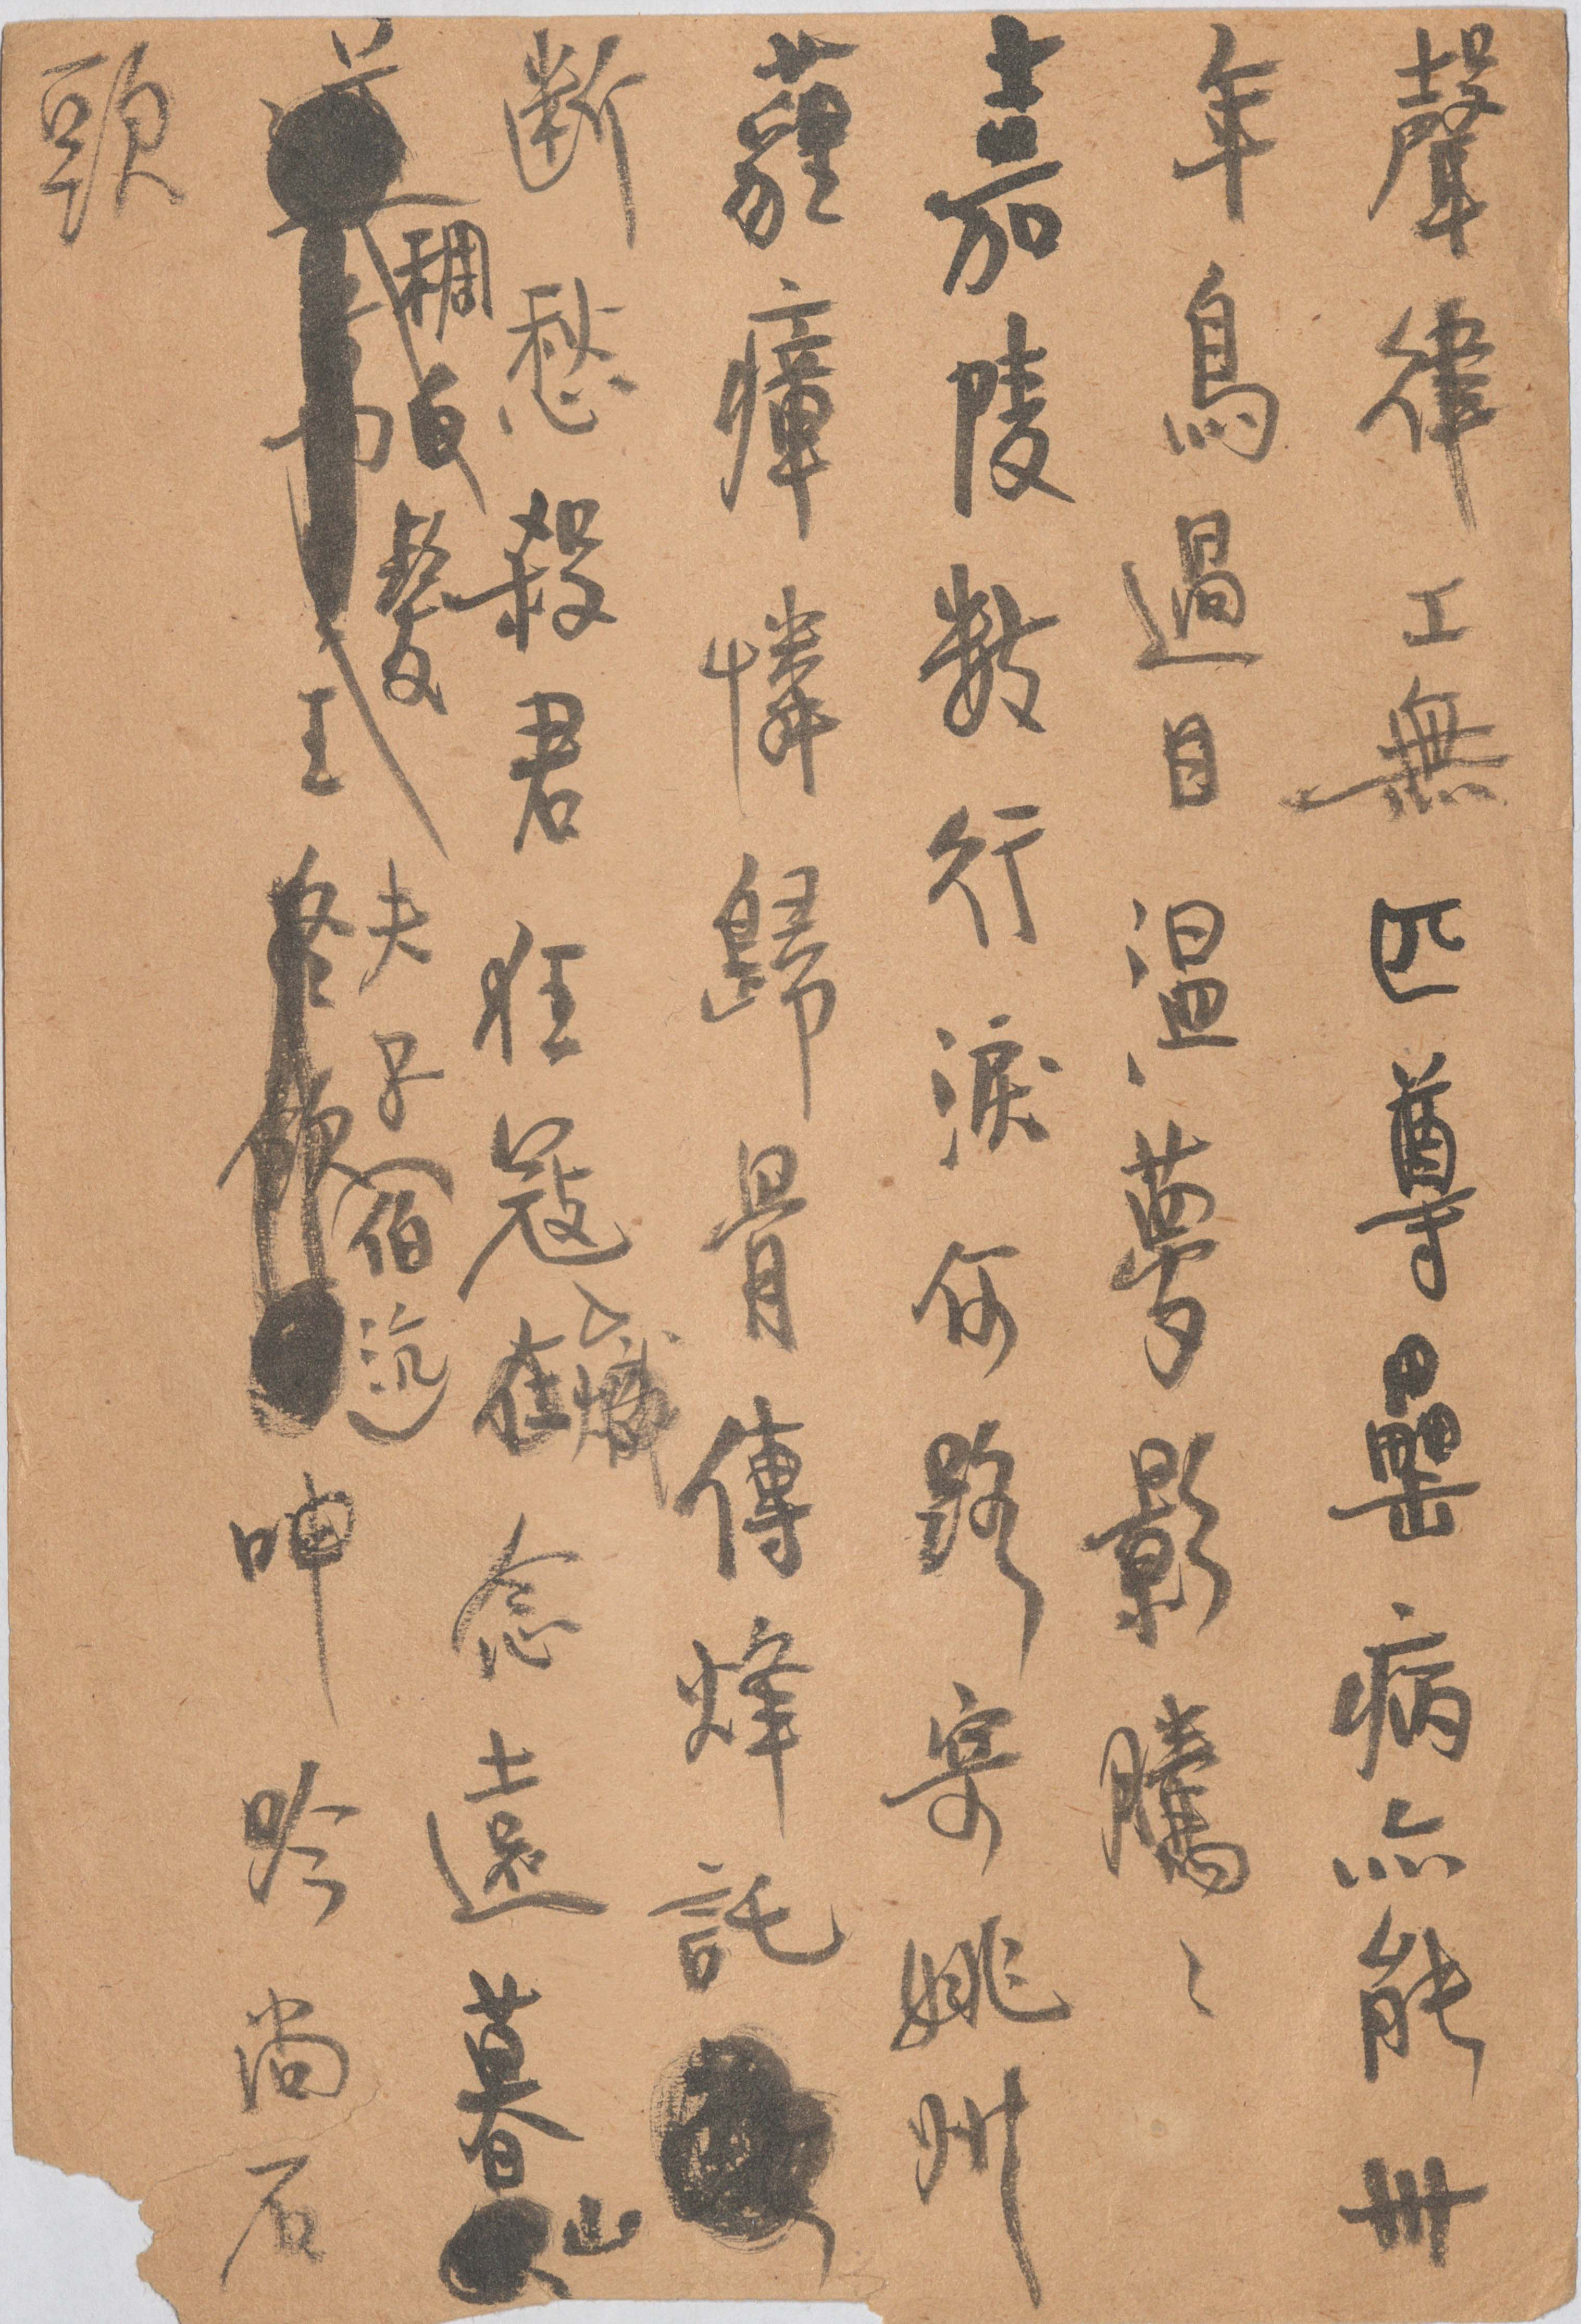 聲律工無匹尊罍病亦能卅
年鳥過目溫夢影騰〻
嘉陵數行淚何路寄姚州
蘿瘴憐歸骨傳烽託
断愁殺君狂寇在念遠暮山
稠白髮夫子(伯沆)
王呻吟尚石
頭